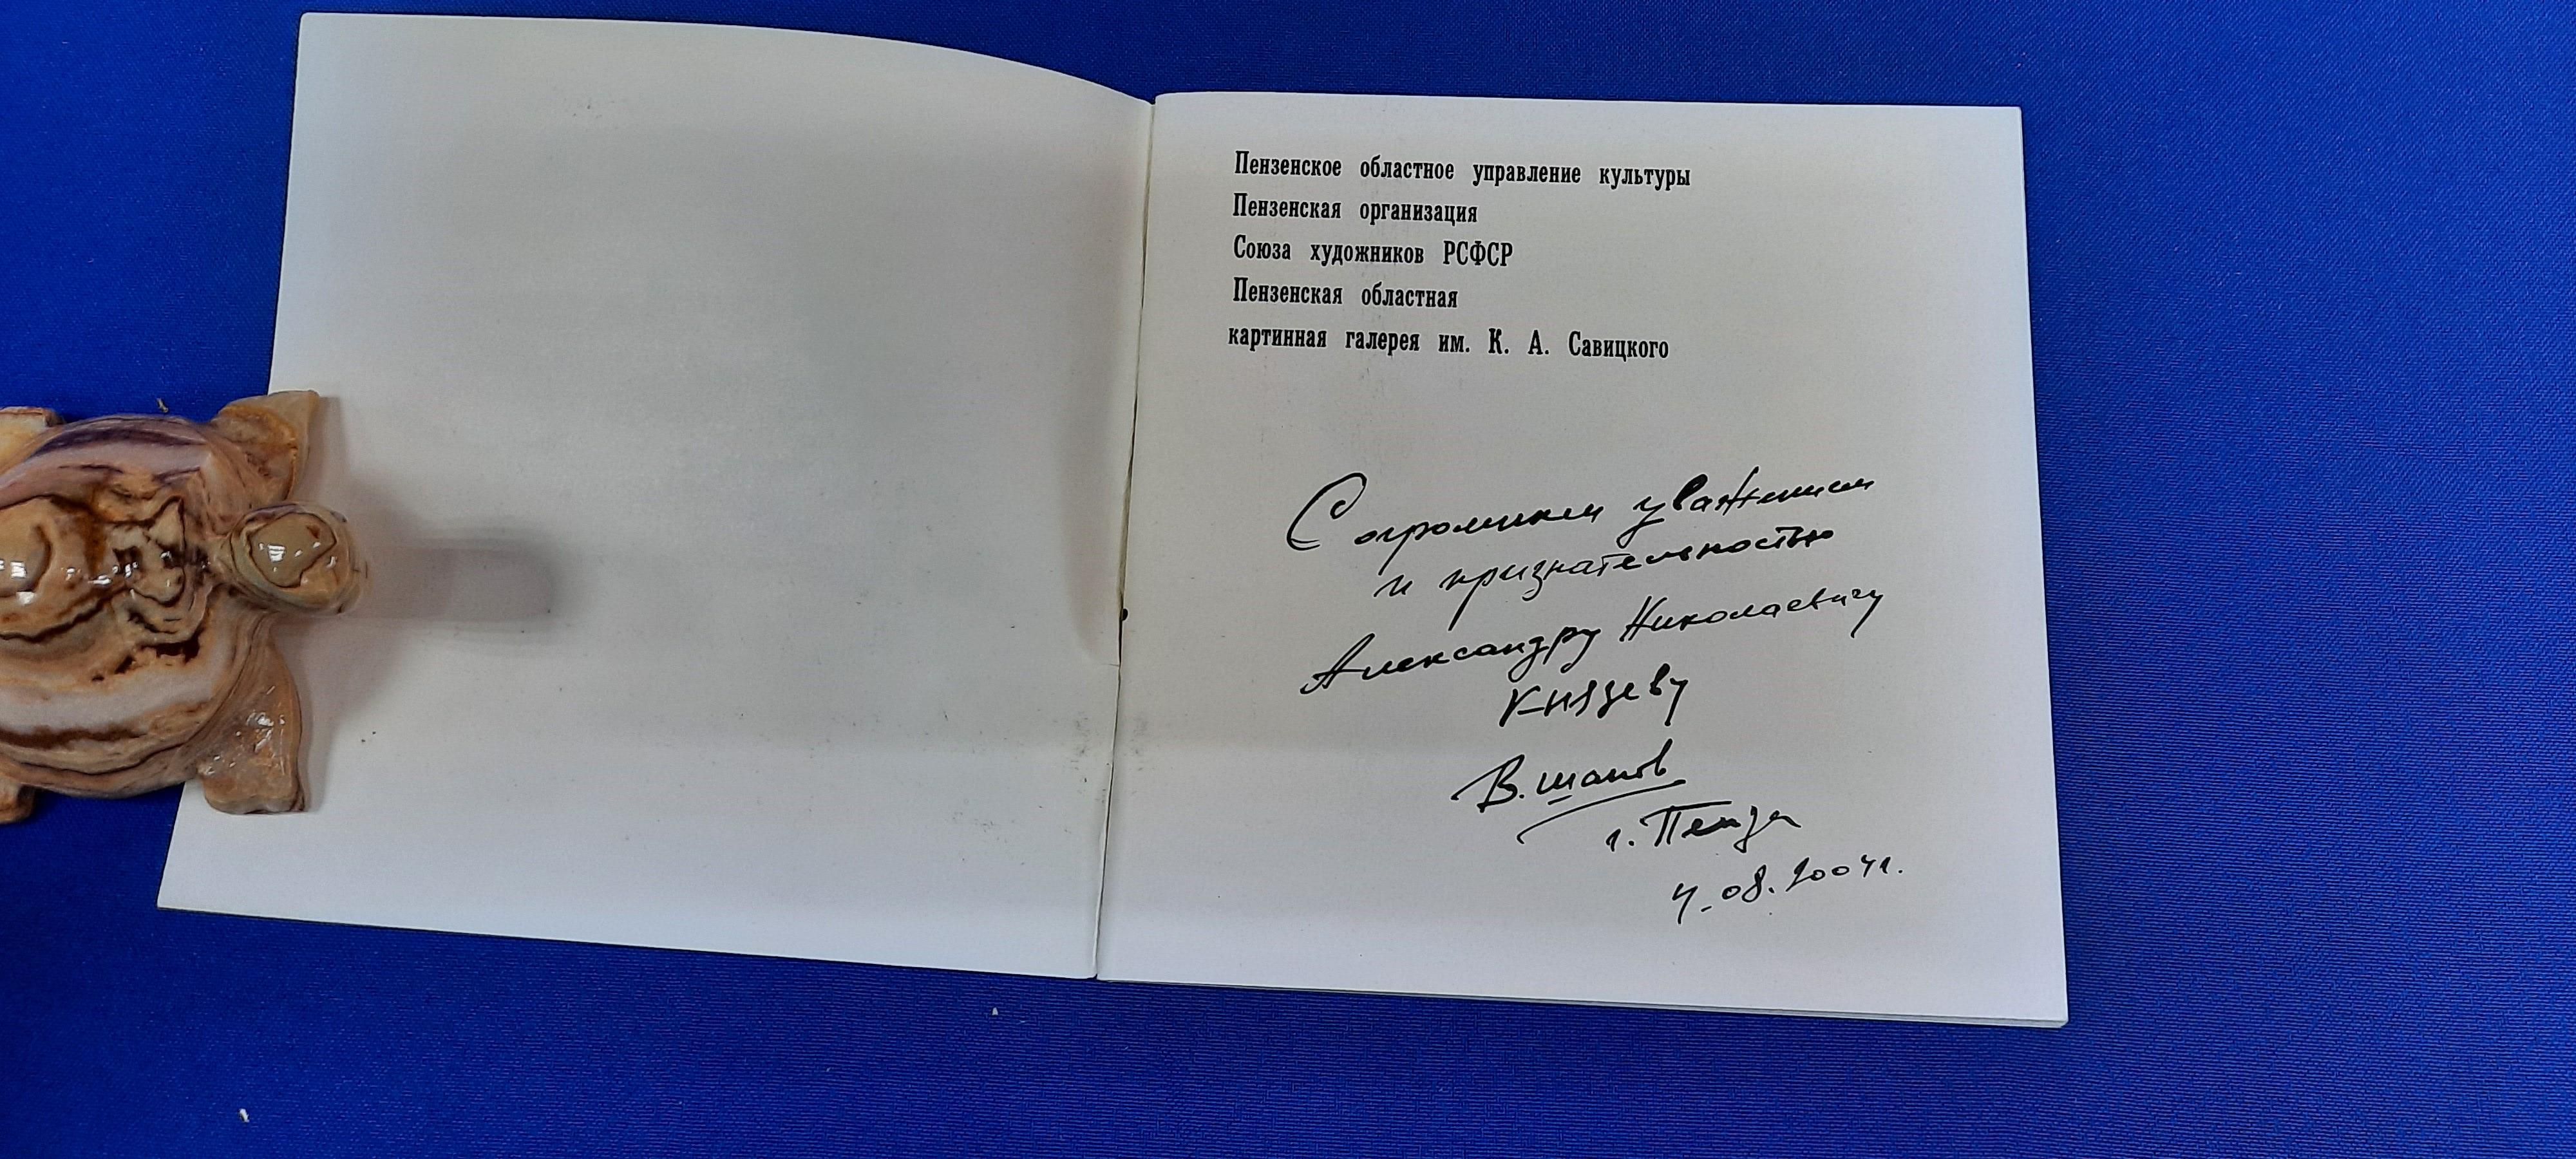 Пензенское областное управление культуры
Пензенская организация
Союза художников РСФСР
Пензенская областная
картинная галерея им. К. А. Савицкого
С огромным уважением
и признательностью
Александру Николаевичу
Князеву
В.
г. Пенза
4.08.2004г.